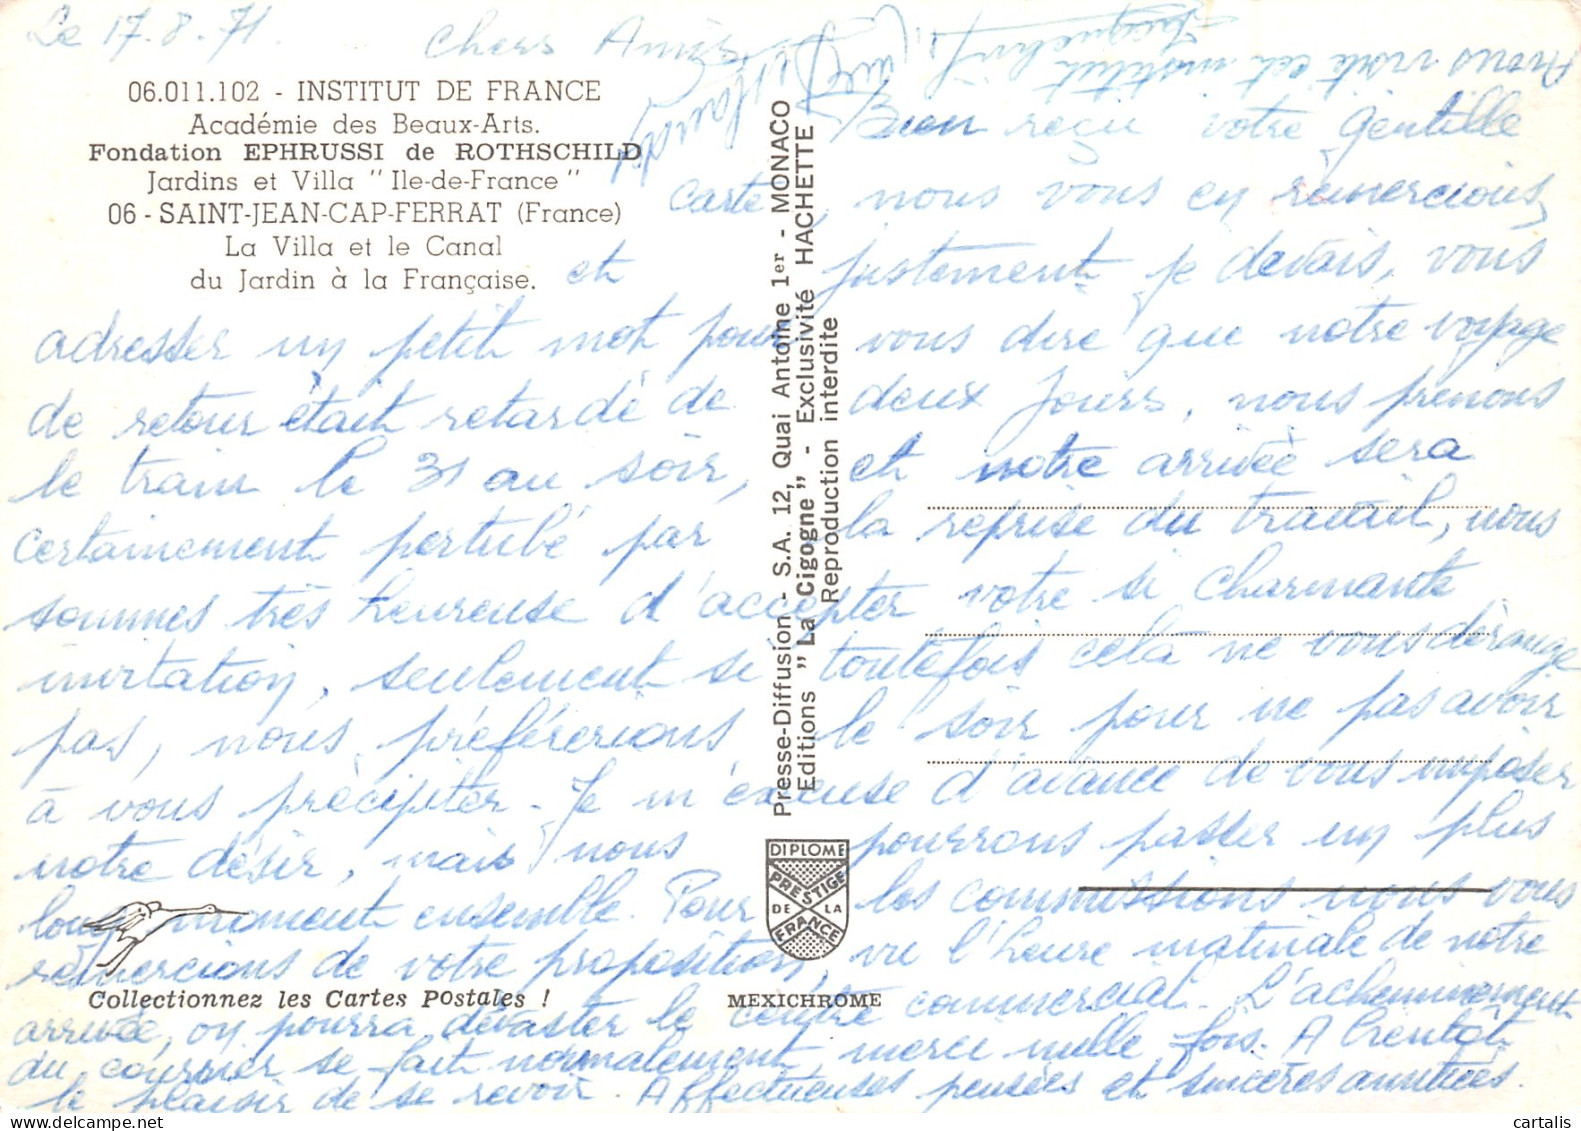 Le 17.8.71.
Chers Amis
06.011.102 - INSTITUT DE FRANCE
Académie des Beaux-Arts.
Fondation EPHRUSSI de ROTHSCHILD
Jardins et Villa " Ile-de-France "
06 - SAINT-JEAN-CAP-FERRAT (France)
La Villa et le Canal
du Jardin à la Française.
Bien reçu votre gentille
carte, nous vous en remercions,
et justement je devais, vous
adresser un petit mot pour vous dire que notre voyage
de retour était retardé de deux jours, nous prenons
le train le 31 au soir, et notre arrivée sera
certainement pertubé par la reprise du travail, nous
sommes très heureuse d'accepter votre si charmante
invitation, seulement si toutefois cela ne vous dérange
pas, nous préférerions le soir pour ne pas avoir
à vous précipiter - Je m'excuse d'avance de vous imposer
notre désir, mais nous pourrons passer un plus
long moment ensemble. Pour les commissions nous vous
remercions de votre proposition, vu l'heure matinale de notre
arrivée, on pourra dévaster le centre commercial. L'acheminement
du courrier se fait normalement, merci mille fois. A bientôt
le plaisir de se revoir. Affectueuses pensées et sincères amitiés.
Avons visité cet institut
Jacqueline
Presse-Diffusion - S.A. 12, Quai Antoine 1er - MONACO
Editions " La Cigogne " - Exclusivité HACHETTE
Reproduction interdite
DIPLOME
PRESTIGE
DE LA
FRANCE
Collectionnez les Cartes Postales !
MEXICHROME
cartalis